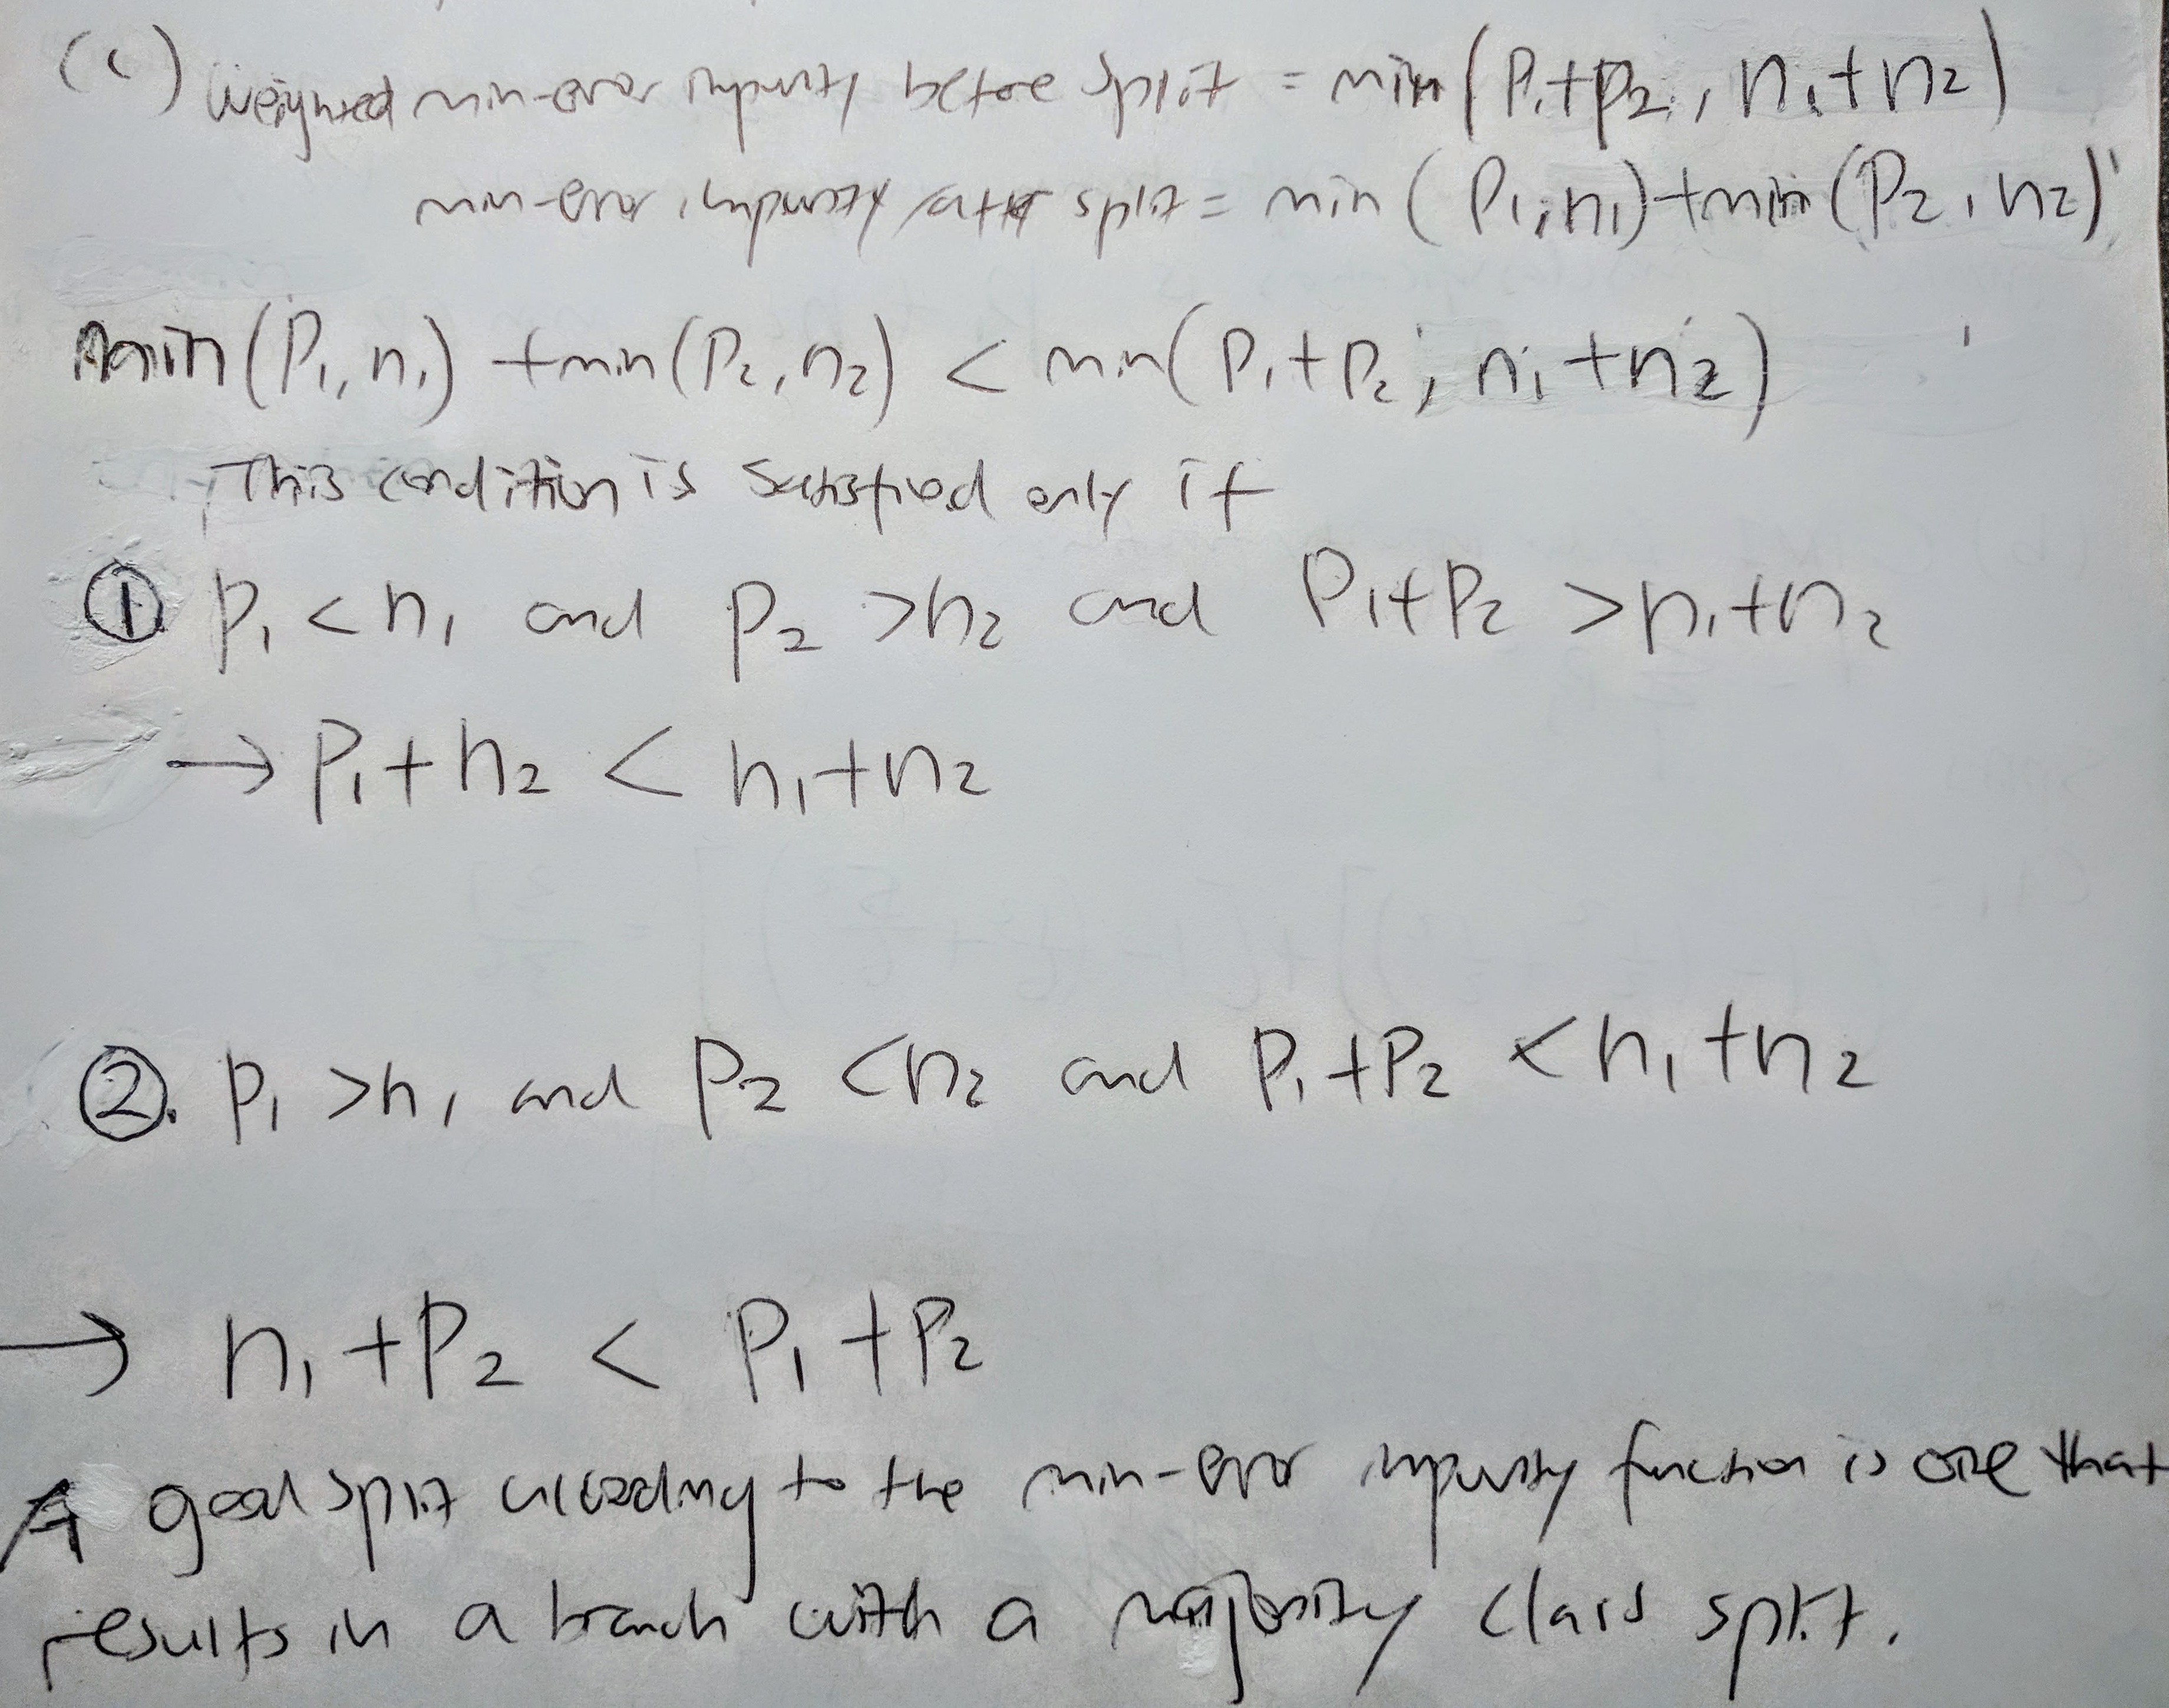 (c) Weighted min-error impurity before split = min(P₁+P₂, n₁+n₂)
min-error impurity after split = min(P₁,n₁)+min(P₂,n₂)
min(P₁,n₁)+min(P₂,n₂) < min(P₁+P₂, n₁+n₂)
This condition is satisfied only if
① P₁<n₁ and P₂>n₂ and P₁+P₂>n₁+n₂
→ P₁+n₂ < n₁+n₂
②. P₁>n₁ and P₂<n₂ and P₁+P₂<n₁+n₂
→ n₁+P₂ < P₁+P₂
A good split according to the min-error impurity function is one that
results in a branch with a majority class split.